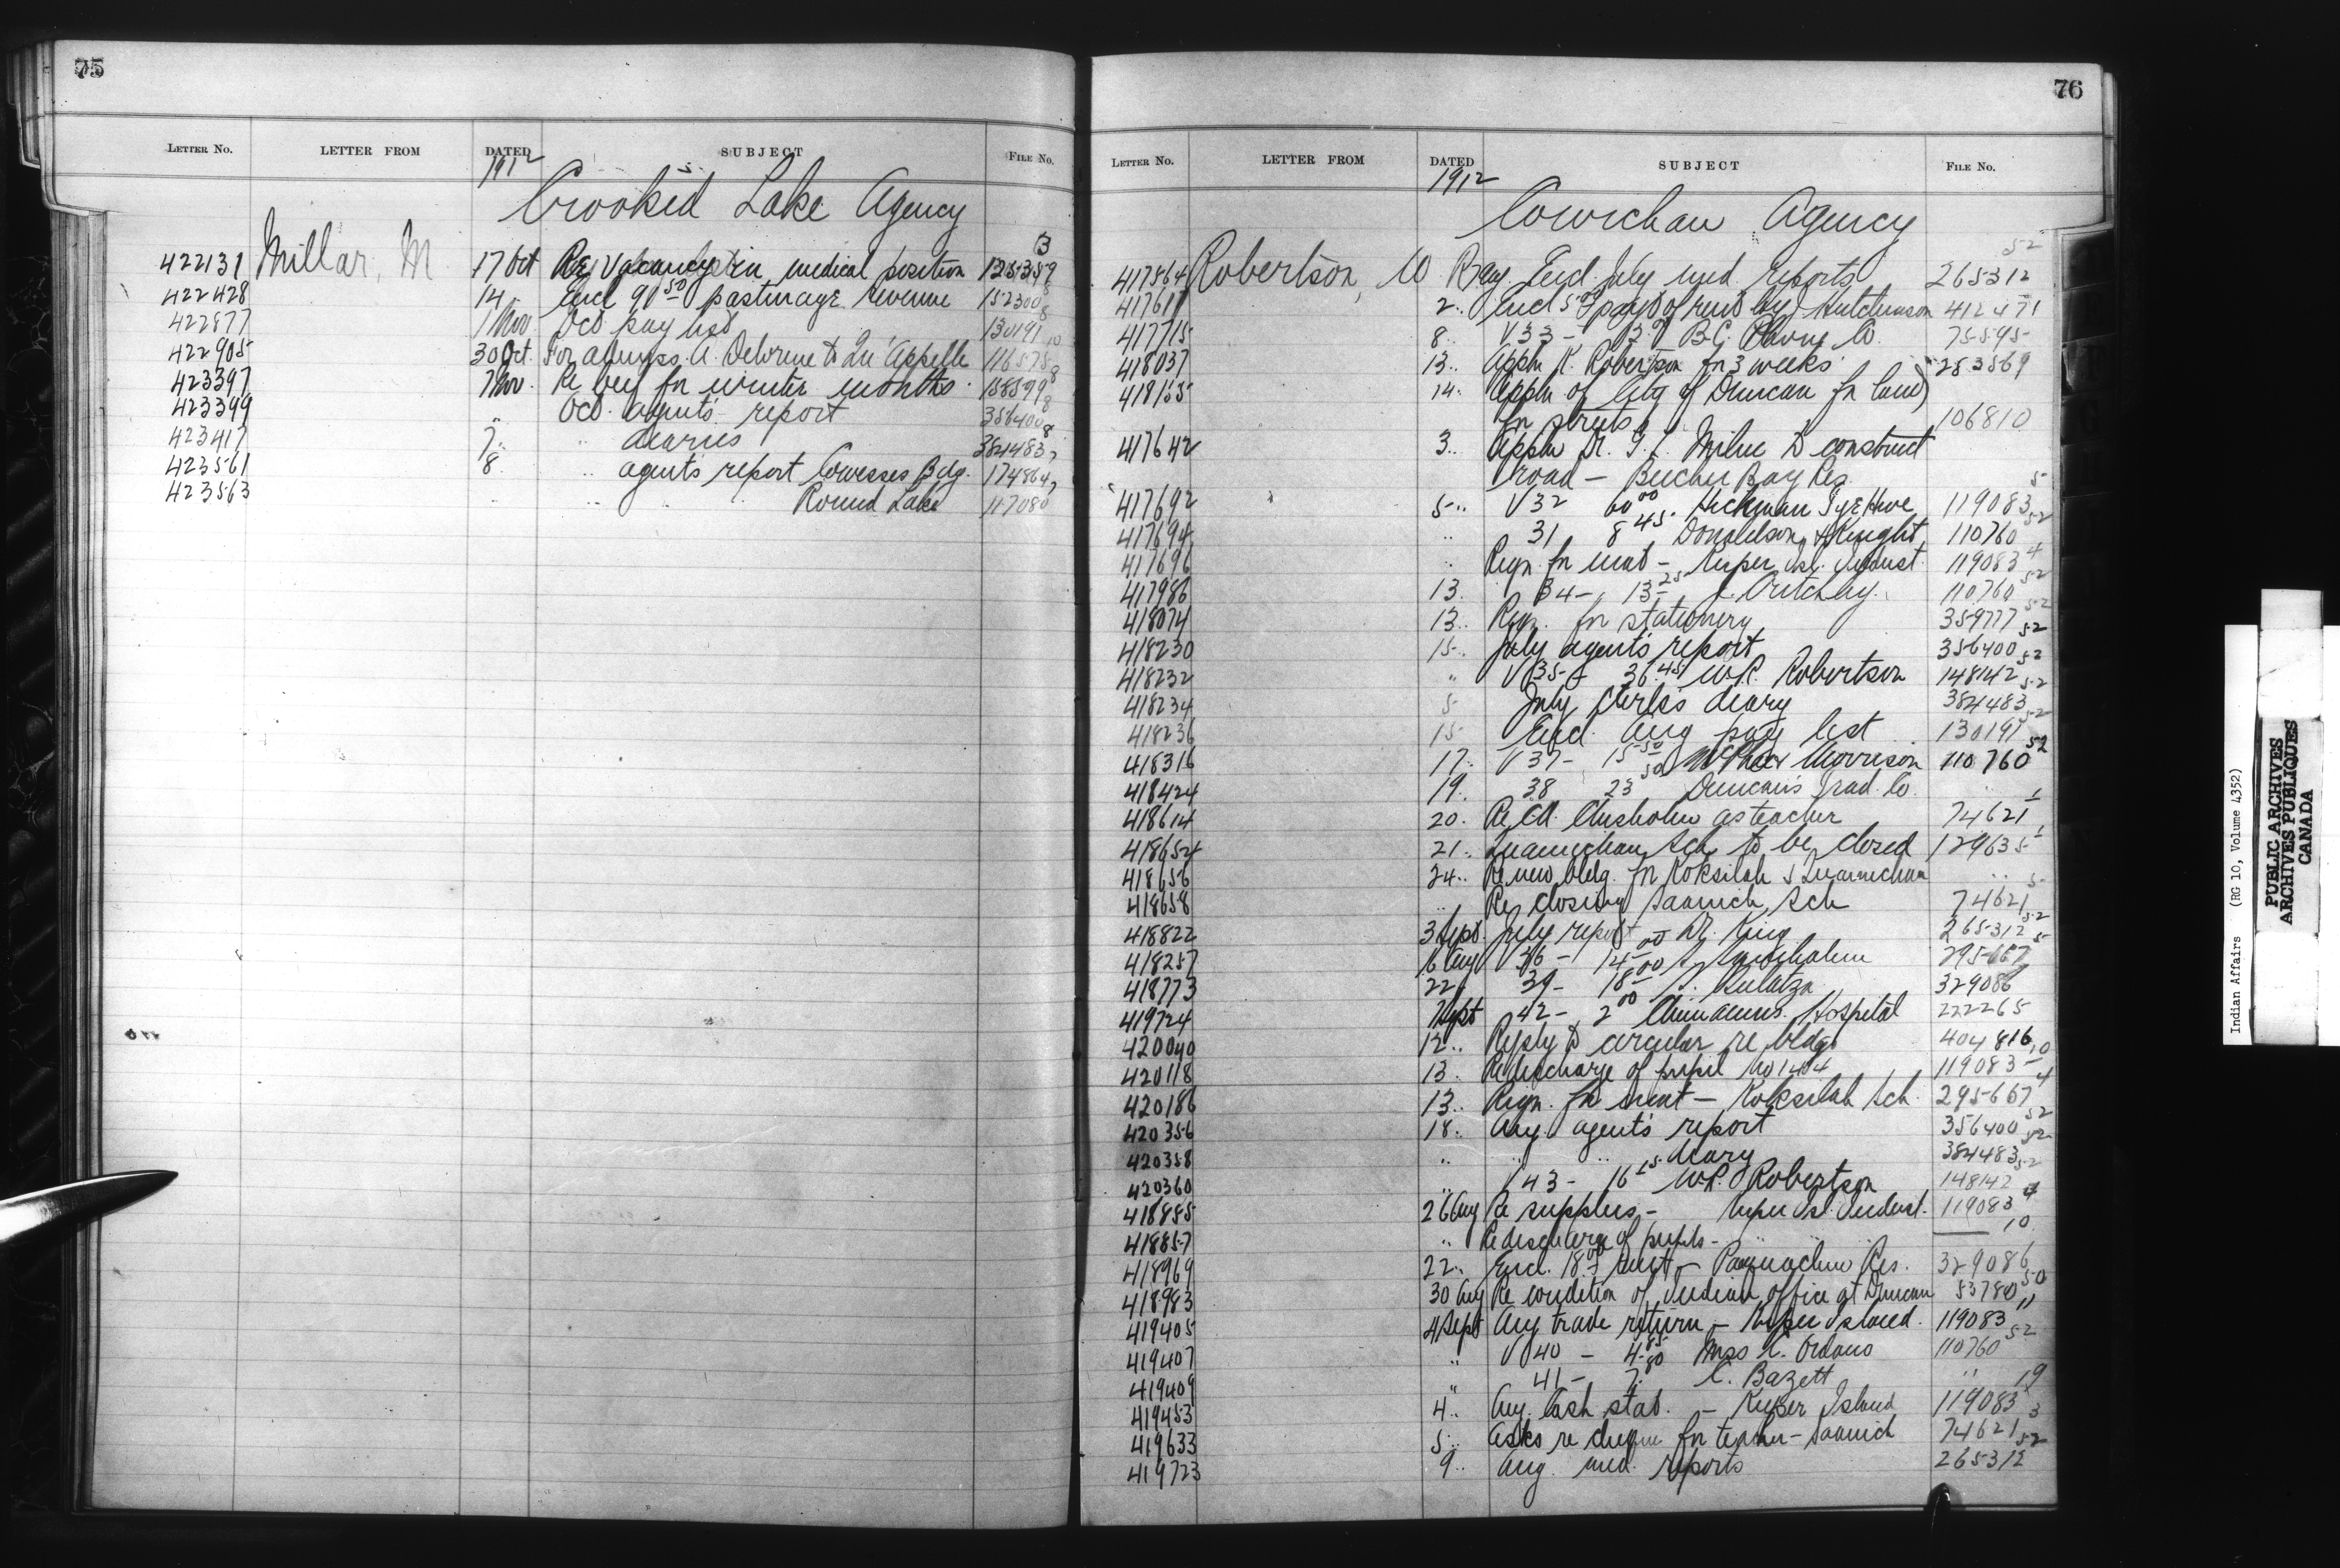 75
LETTER No. LETTER FROM DATED SUBJECT FILE No.
1912
Crooked Lake Agency
422131 Millar, M 17 Oct Re Vacancy in medical position
422428 14 Encl 91 50 pasturage revenue 152300 8
422877 1 Nov. Oct pay list 130191 10
422905 30 Oct. For admiss. A. Delorme to Qu'Appelle 116575 8
423397 7 Nov. Re beef for winter months 158599 8
423399 " Oct. agent's report 356400 8
423417 7 " diaries 384483 7
423561 8 " agent's report Cowesses Bdg. 174864 7
423563 " " Round Lake 117080
76
LETTER No. LETTER FROM DATED SUBJECT FILE No.
1912
Cowichan Agency
417564 Robertson, W R Aug. Encl. July med. reports 265312 52
417611 2 " Encl 5 payt of rent by Hutchinson 412471
417715 8 " V 33 - B.C. Co. 75595
418037 13 " Appln R. Robertson for 3 weeks 253569
418155 14 " Appln of City of Duncan for land
for streets 106810
417642 3 " Appln Dr. G. L. Milne to construct
road - Becher Bay Res.
417692 5 " V 32 60 00 Hickman Tye Hwe 119083 5
417694 " 31 8 45 Donaldson & Knight 110760 52
417696 " Reqn. for meat - Kuper Isl. Indust. 119083 4
417986 13. 34 - 13 25 110760 52
418074 13 " Reqn. for stationery 359777 52
418230 15 " July agent's report 356400 52
418232 " V 35 - 36 45 W.R. Robertson 148142 52
418234 5 July Clerk's diary 384483 52
418236 15 Encl. Aug pay list 130191 52
418316 17 " V 37 - 15 50 Morrison 110760 52
418424 19 " 38 23 50 Duncan's Trad. Co. "
418614 20 " Re Chisholm as teacher 74621 1
418654 21 " Quamichan Sch. to be closed 129635 1
418656 24 " Re new bldg. for Koksilah & Quamichan "
418658 " Re closing Saanich Sch 74621 5
418822 3 Sept. July report Dr. King 265312 52
418257 16 Aug V 36 - 14 00 295667 5
418773 22 39 - 18 00 329086
419724 7 Sept 42 - 2 00 Chemainus Hospital 222265
420040 12 " Reply to circular re bldgs 404816
420118 13 " Re discharge of pupil No 144 119083 10
420186 13 " Reqn. for - Koksilah Sch. 295667 4
420356 18 " Aug. agent's report 356400 52
420358 " " " diary 384483 52
420360 " V 43 - 16 15 W.R. Robertson 148142 52
418885 26 Aug Re supplies - Kuper Isl. Indust. 119083 4
418857 " Re discharge of pupils - " " 10
418969 22 " Encl. 18 00 rent - Res. 329086
418983 30 Aug Re condition of Indian office at Duncan 53780 50
419405 4 Sept Aug trade return - Kuper Island 119083 11
419407 " V 40 - 4 85 Miss 110760 52
419409 " 41 - 7 80 C. Bazett "
419453 4 " Aug. Cash stat. - Kuper Island 119083 19
419633 5 " Asks re cheque for teacher - Saanich 74621 3
419723 9 " Aug. med. reports 265312 52
Indian Affairs (RG 10, Volume 4352)
PUBLIC ARCHIVES
ARCHIVES PUBLIQUES
CANADA